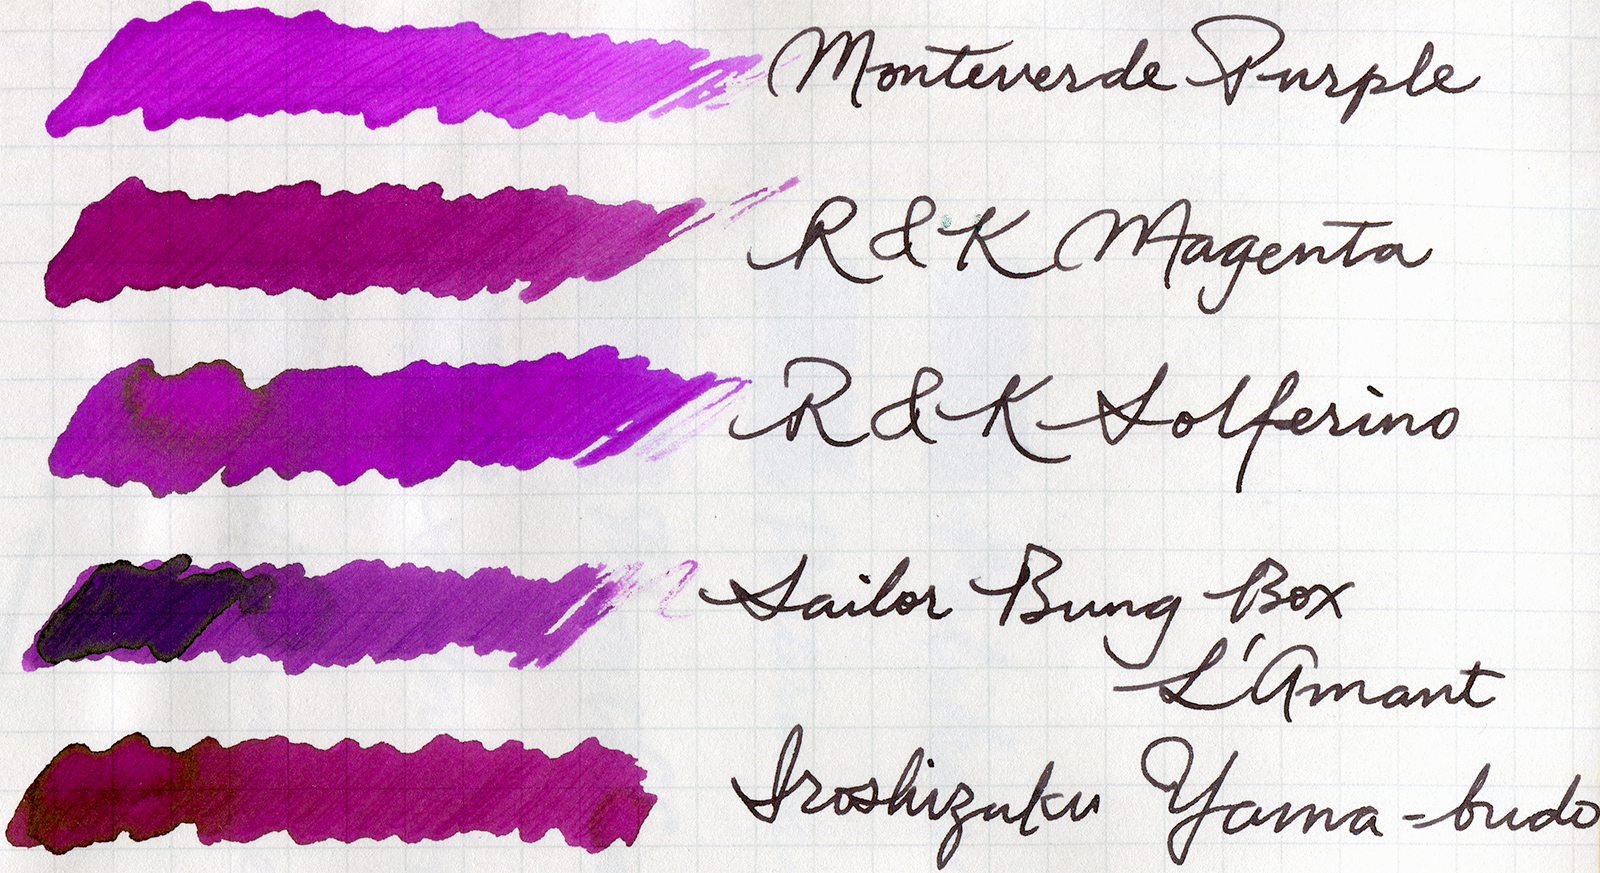 Monteverde Purple
R & K Magenta
R & K Solferino
Sailor Bung Box
L'Amant
Iroshizuku Yama-budo